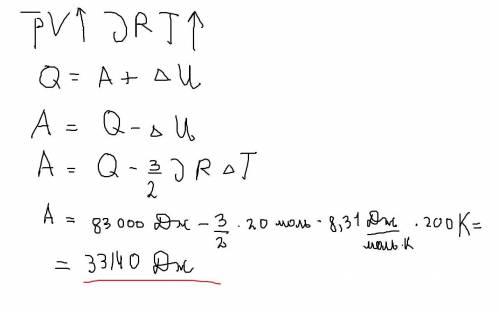 PV↑ υRT↑
Q = A + △U
A = Q - △U
A = Q - 3/2 υR△T
A = 83 000 Дж - 3/2 · 20 моль · 8,31 Дж/моль·К · 200К =
= 33140 Дж